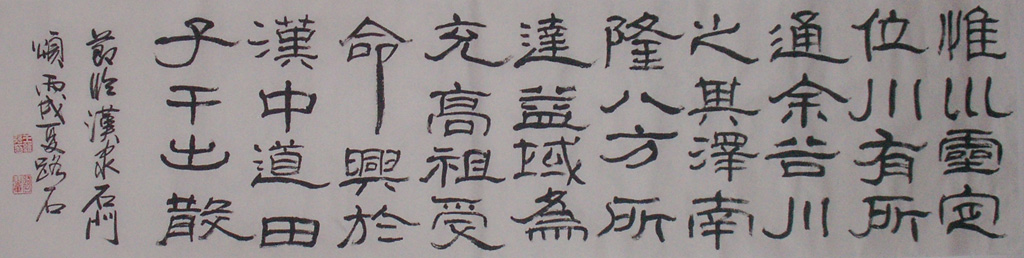 惟巛靈定
位川有所
通余谷川
之其澤南
隆八方所
達益域為
充高祖受
命興於
漢中道由
子午出散
節臨漢隸石門
頌丙戌夏路石